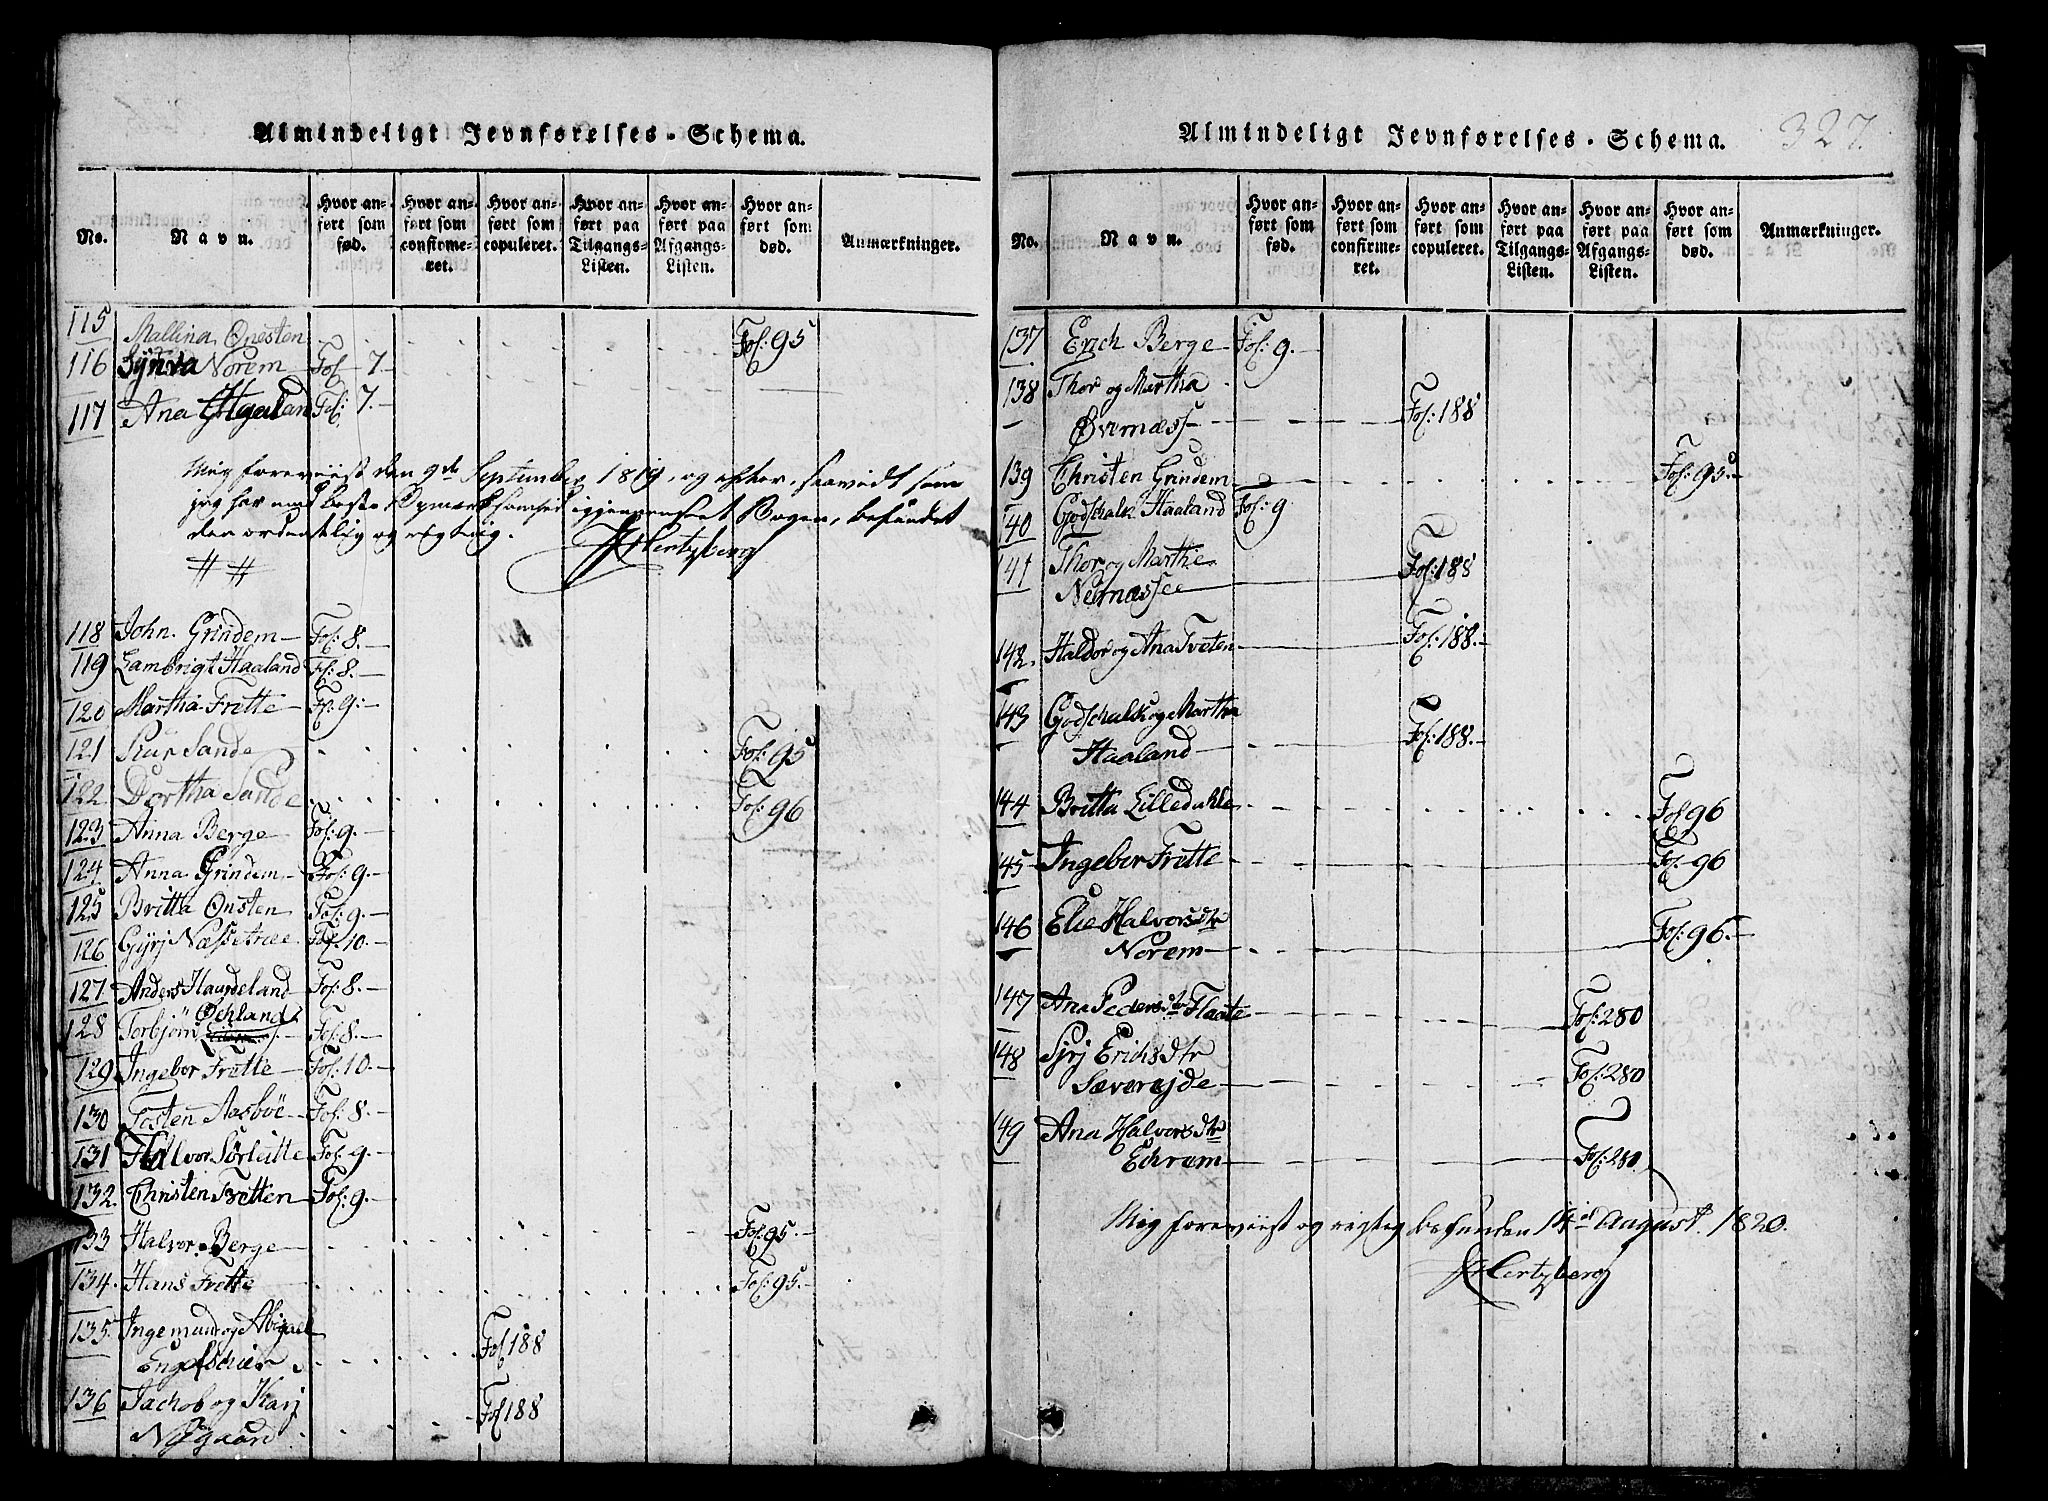 Almindeligt Jevnførelses-Schema.
No. Navn. Hvor anført som fød. Hvor anført som confirmeret. Hvor anført som copuleret. Hvor anført paa Tilgangs-Listen. Hvor anført paa Afgangs-Listen. Hvor anført som død. Anmærkninger.
115 Mallina Onesten Fol: 95
116 Synva Norem Fol 7
117 Ana Fol: 7.
Mig foreviist den 9de September 1819, og efter, saavidt som
jeg har med beste Opmærksomhed igjennemseet Bogen, befundet
den ordentlig og rigtig. Hertzberg
118 John Grindem Fol: 8.
119 Lambrigt Haaland Fol: 8.
120 Martha Frette Fol: 9.
121 Sande Fol: 95
122 Dortha Sande Fol: 96
123 Anna Berge Fol: 9.
124 Anna Grindem Fol: 9.
125 Britta Onsten Fol: 9.
126 Gyrj Næssetræe Fol: 10.
127 Anders Haurdeland Fol: 8.
Øchland
128 Torbjørn Fol: 8.
129 Ingebor Frette Fol: 10.
130 Tosten Aasbøe Fol: 8.
131 Halvor Sørleitte Fol: 9.
132. Christen Tvetten Fol: 9.
133 Halvor Berge Fol: 95.
134. Hans Frette Fol: 95.
135. Ingemund og Abigael
Engelschiør Fol 188
136 Jachob og Karj Fol 188
Nøgaard
Almindeligt Jevnførelses-Schema. 327.
No. Navn. Hvor anført som fød. Hvor anført som confirmeret. Hvor anført som copuleret. Hvor anført paa Tilgangs-Listen. Hvor anført paa Afgangs-Listen. Hvor anført som død. Anmærkninger.
137 Erich Berge Fol: 9.
138 Thor og Martha
Øvernæss Fol: 188
139 Christen Grindem Fol: 95
140 Godschalk Haaland Fol: 9
141 Thor og Marthe Fol: 188
Nernæssee
142. Haldor og Ana Tveten Fol: 188.
143 Godschalk og Martha
Haaland Fol: 188.
144 Britta Lilledahle Fol 96
145 Ingebor Frette Fol: 96
146 Elie Halvorsdtr
Norem Fol: 96.
147 Ana Pedersdtr Flaate Fol: 280
148 Sirj Erichsdtr
Sævereide Fol: 280
149 Ana Halvorsdtr
Echræm Fol: 280
Mig foreviist og rigtig befunden 14de August 1820.
Hertzberg